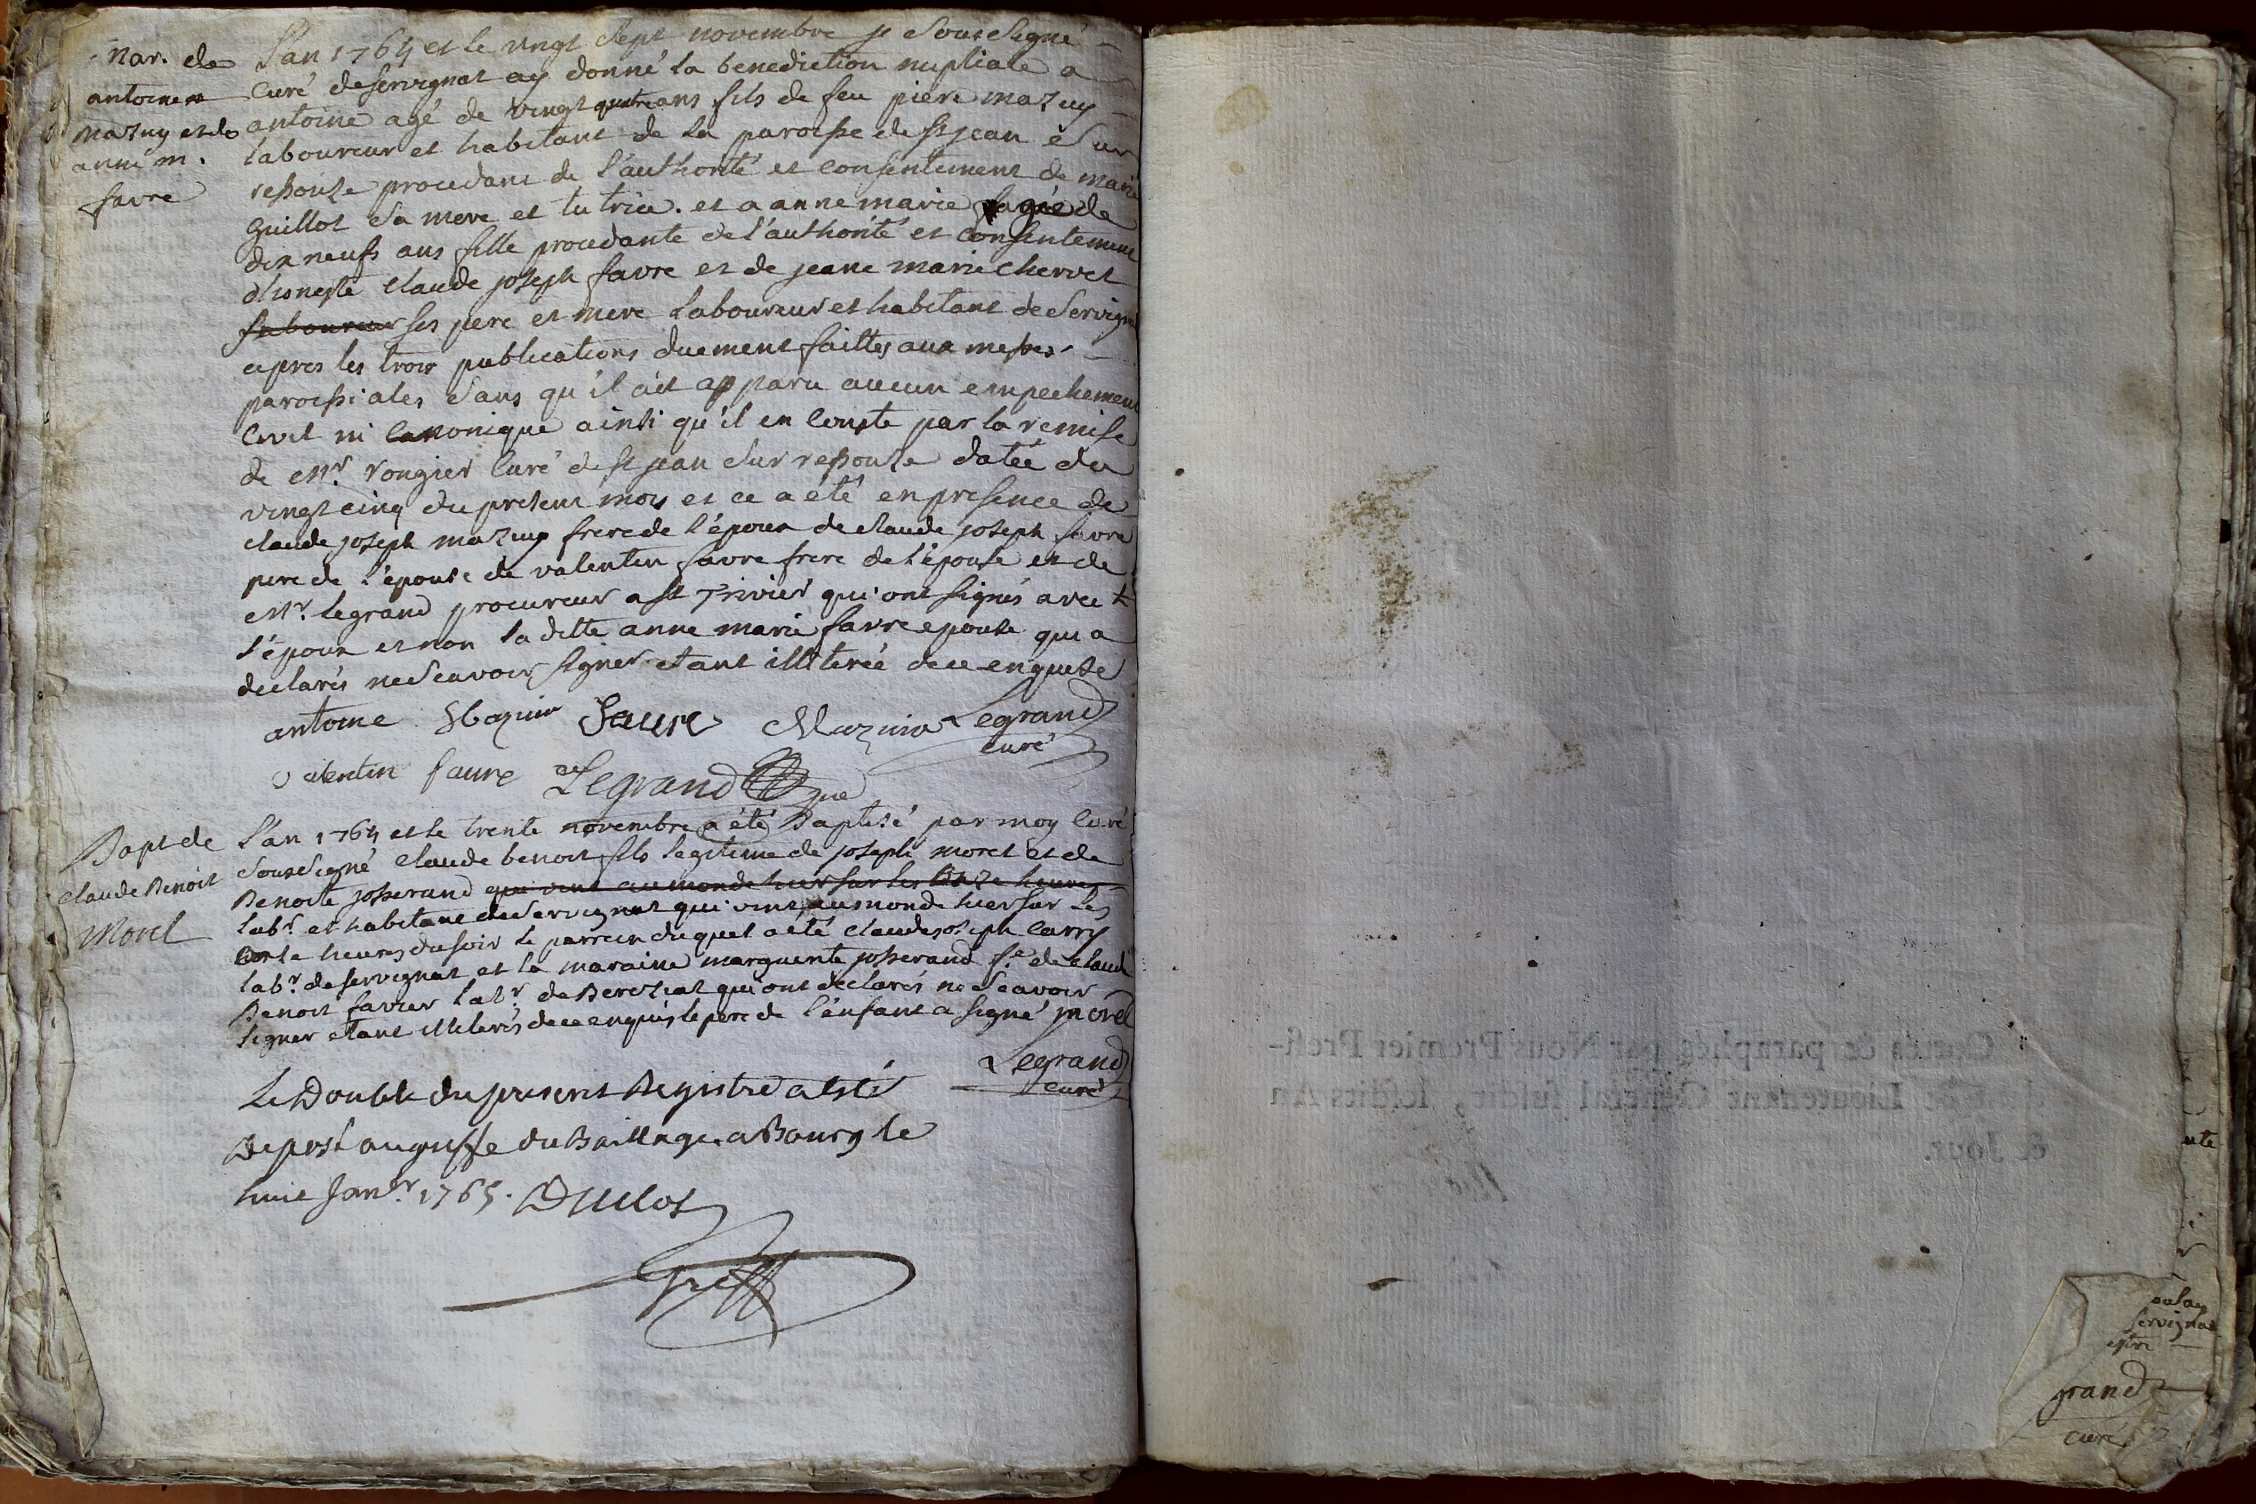 Mar. de
antoine
mazuy et de
anne m.
favre
L'an 1764 et le vingt sept novembre je sousigné
curé de servignat ay donné la benediction nuptiale a
antoine agé de vingt quatre ans fils de feu piere mazuy
laboureur et habitant de la paroisse de st jean sur
ressouze procedant de l'authorité et consentement de marie
guillot sa mere et tutrice. et a anne marie agée de
dix neufs ans fille procedante de l'authorité et consentement
d'honeste claude joseph favre et de jeane marie chervet
laboureur ses pere et mere laboureur et habitant de servignat
apres les trois publications duement faittes aux messes
paroissiales sans qu'il ait apparu aucun empechement
civil ni canonique ainsi qu'il en conste par la remise
de Mr. rongier curé de st jean sur ressouze datée du
vingt cinq du present mois et ce a été en presence de
claude joseph mazuy frere de l'époux de claude joseph favre
pere de l'épouse de valentin favre frere de l'épouse et de
Mr. legrand procureur a st Trivier qui ont signés avec
l'époux et non la ditte anne marie favre epouse qui a
declarés ne scavoir signer etant illiterée de ce enquise
antoine Mazuir faure Mazuir Legrand
curé
valentin faure Legrand
Bapt de
claude Benoit
Morel
L'an 1764 et le trente novembre a été Baptisé par moy curé
sousigné claude benoit fils legitime de joseph morel et de
Benoite josserand qui vint au monde hier sur les onze heures
labr. et habitant de servignat qui vint au monde hier sur les
onze heures du soir le parrein duquel a été claude joseph carry
labr. de servignat et la maraine marguerite josserand fe. de claude
Benoit favier labr. de Bereziat qui ont declarés ne scavoir
signer etant illiterés de ce enquis le pere de l'enfant a signé morel
Legrand
curé
Le Double du present Registre a esté
Deposé au greffe du Baillage a Bourg le
huit Janvr. 1765. Duclos
Greff
Cottés & paraphés par Nous Premier Presi-
Lieutenant Général susdit, lesdits An
& Jour.
servignat
grand
curé